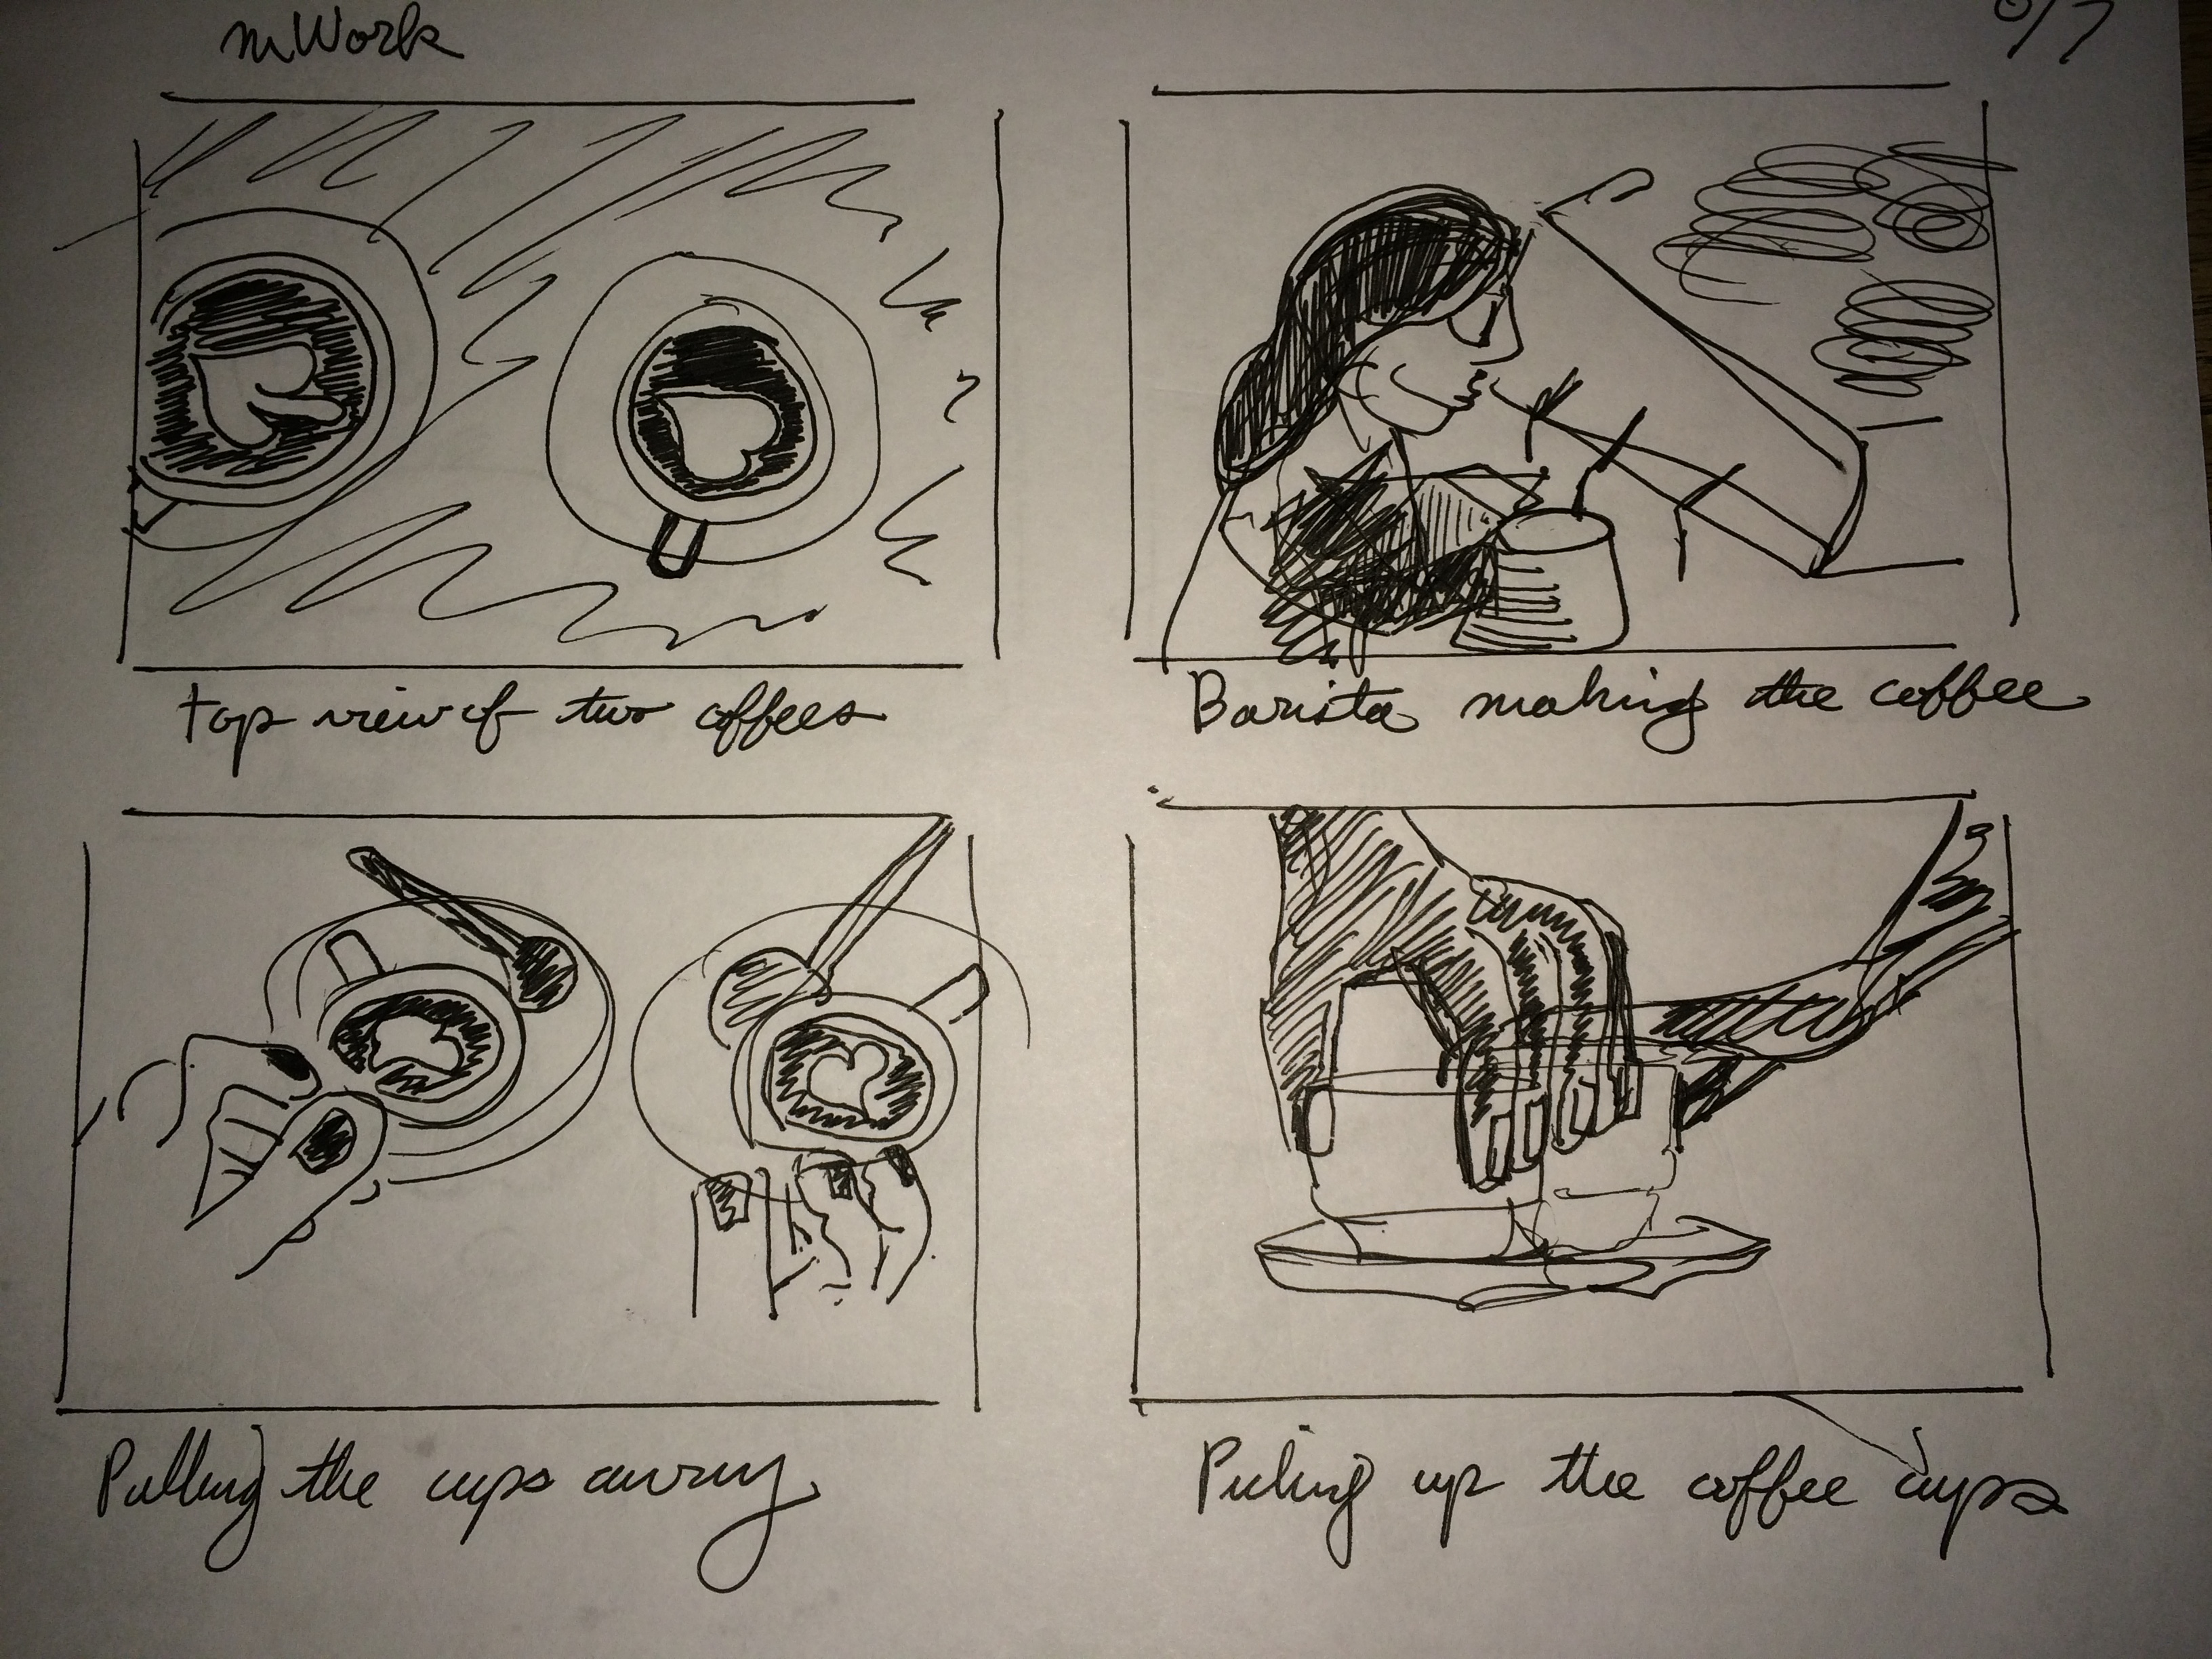 mWork
top view of two coffees
Barista making the coffee
Pulling the cups away
Picking up the coffee cups